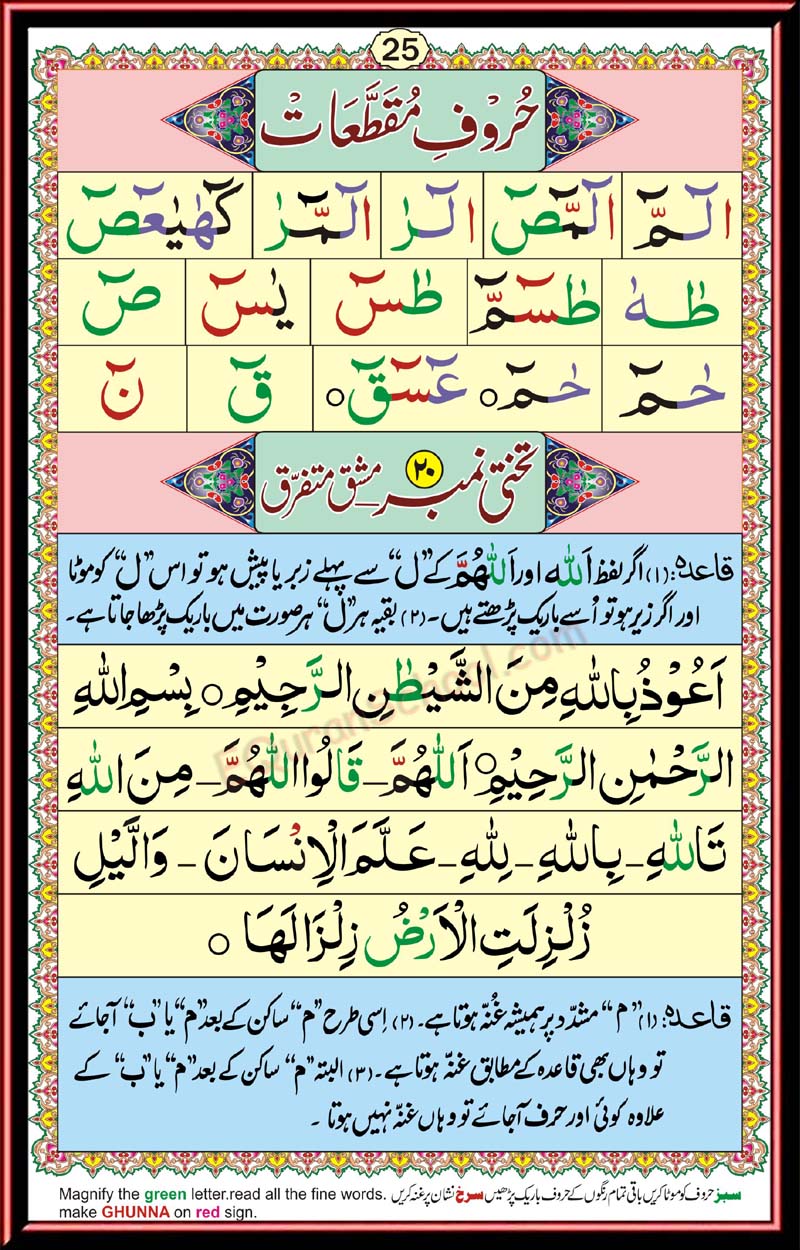 25
حُرُوْفِ مُقَطَّعَات
الٓمّٓ الٓمّٓصٓ الٓرٰ الٓمّٓرٰ كٓهٰيٰعٓصٓ
طٰهٰ طٰسٓمّٓ طٰسٓ يٰسٓ صٓ
حٰمٓ حٰمٓ ○ عٓسٓقٓ ○ قٓ نٓ
تختی نمبر ۲۰ مشق متفرّق
قاعدہ: (۱) اگر لفظ اَللہ اور اَللّٰھُمَّ کے ”ل“ سے پہلے زبر یا پیش ہو تو اس ”ل“ کو موٹا
اور اگر زیر ہو تو اُسے باریک پڑھتے ہیں۔ (۲) بقیہ ہر ”ل“ ہر صورت میں باریک پڑھا جاتا ہے۔
اَعُوْذُ بِاللّٰهِ مِنَ الشَّيْطٰنِ الرَّجِيْمِ ○ بِسْمِ اللّٰهِ
الرَّحْمٰنِ الرَّحِيْمِ ○ اَللّٰهُمَّ - قَالُوا اللّٰهُمَّ - مِنَ اللّٰهِ
تَاللّٰهِ - بِاللّٰهِ - لِلّٰهِ - عَلَّمَ الْاِنْسَانَ - وَالَّيْلِ
زُلْزِلَتِ الْاَرْضُ زِلْزَالَهَا ○
قاعدہ: (۱) ”م“ مشدّد پر ہمیشہ غُنّہ ہوتا ہے۔ (۲) اِسی طرح ”م“ ساکن کے بعد ”م“ یا ”ب“ آجائے
تو وہاں بھی قاعدہ کے مطابق غنّہ ہوتا ہے۔ (۳) البتہ ”م“ ساکن کے بعد ”م“ یا ”ب“ کے
علاوہ کوئی اور حرف آجائے تو وہاں غنّہ نہیں ہوتا ۔
Magnify the green letter.read all the fine words. سبز حروف کو موٹا کریں باقی تمام رنگوں کے حروف باریک پڑھیں سرخ نشان پر غنہ کریں
make GHUNNA on red sign.
EQuranSchool.com